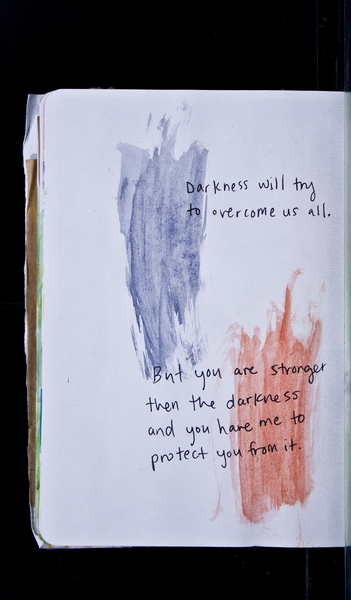 Darkness will try
to overcome us all.
But you are stronger
then the darkness
and you have me to
protect you from it.